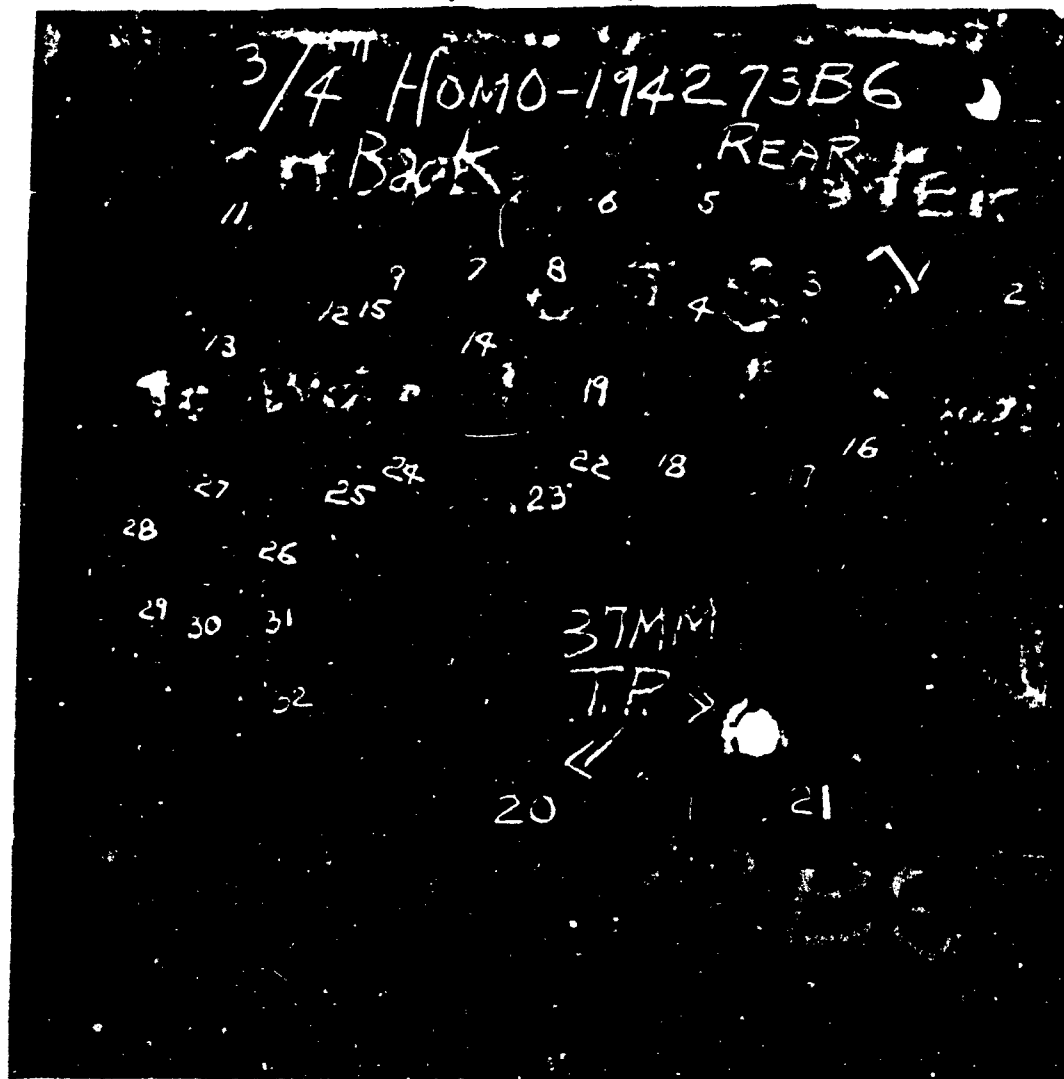 3/4" HOMO-1942 73B6
Back REAR
11 6 5
9 7 8 3 2
12 15 4
13 14
19
16
24 22 18 17
27 25 23
28 26
29 30 31
37MM
32 T.P. >>
<<
20 21